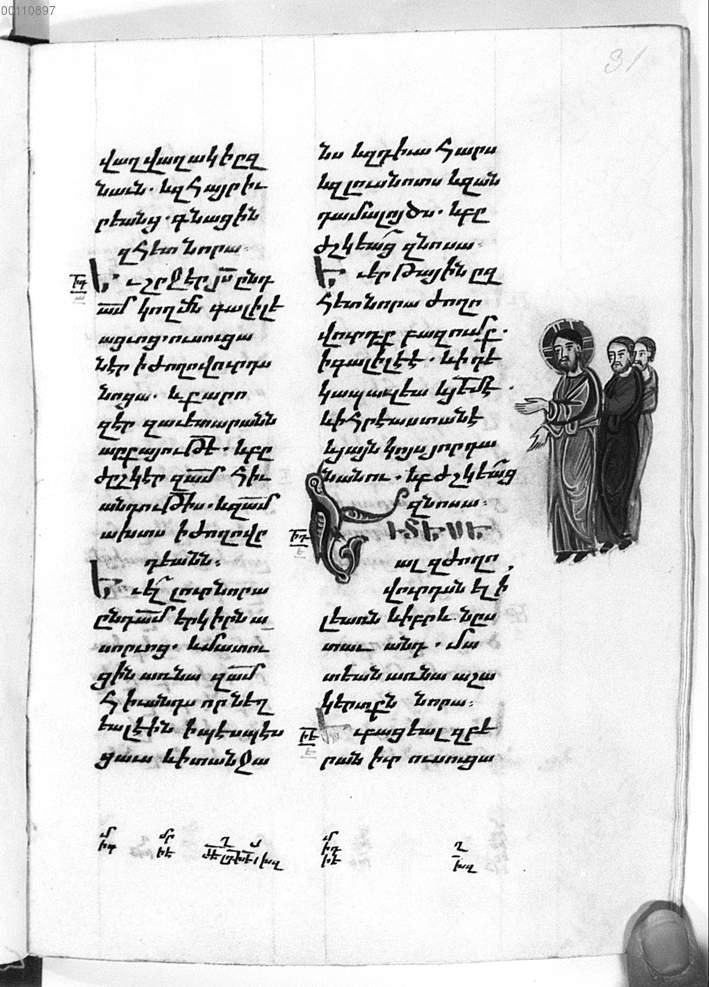 00110897
31
վաղվաղակի ըզ
նաւն. և զհայրիւ
րեանց. գնացին
զհետ նորա։
Եւ շրջէր յս ընդ
ամ կողմն գալիլե
ացւոց. ուսուցա
նէր ի ժողովուրդս
նոցա. և քարո
զէր զաւետարանն
արքայութե. և բը
ժըշկէր զամ հիւ
անդութիս. և զամ
ախտս ի ժողովը
դեանն։
Եւ ել լուր նորա
ընդ ամ երկիրն ա
սորւոց. և մատու
ցին առնա զամ
հիւանդս որ նեղ
եալ էին ի պէսպէս
ցաւս և ի տանջա
նս և զդիւահարս
և զլուսնոտս և զան
դամալոյծս. և բը
ժշկեաց զնոսա։
Եւ երթային ըզ
հետ նորա ժողո
վուրդք բազումք.
ի գալիլեէ. և ի դե
կապօլեա և յեմէ.
և ի հրեաստանէ
և յայնկոյս յորդա
նանու. և բժշկեաց
զնոսա։
Ի ՏԵՍԵ
ալ զժողո
վուրդսն ել ի
լեառն և իբրև նըս
տաւ անդ. մա
տեան առնա աշա
կերտքն նորա։
և բացեալ զբե
րան իւր ուսուցա